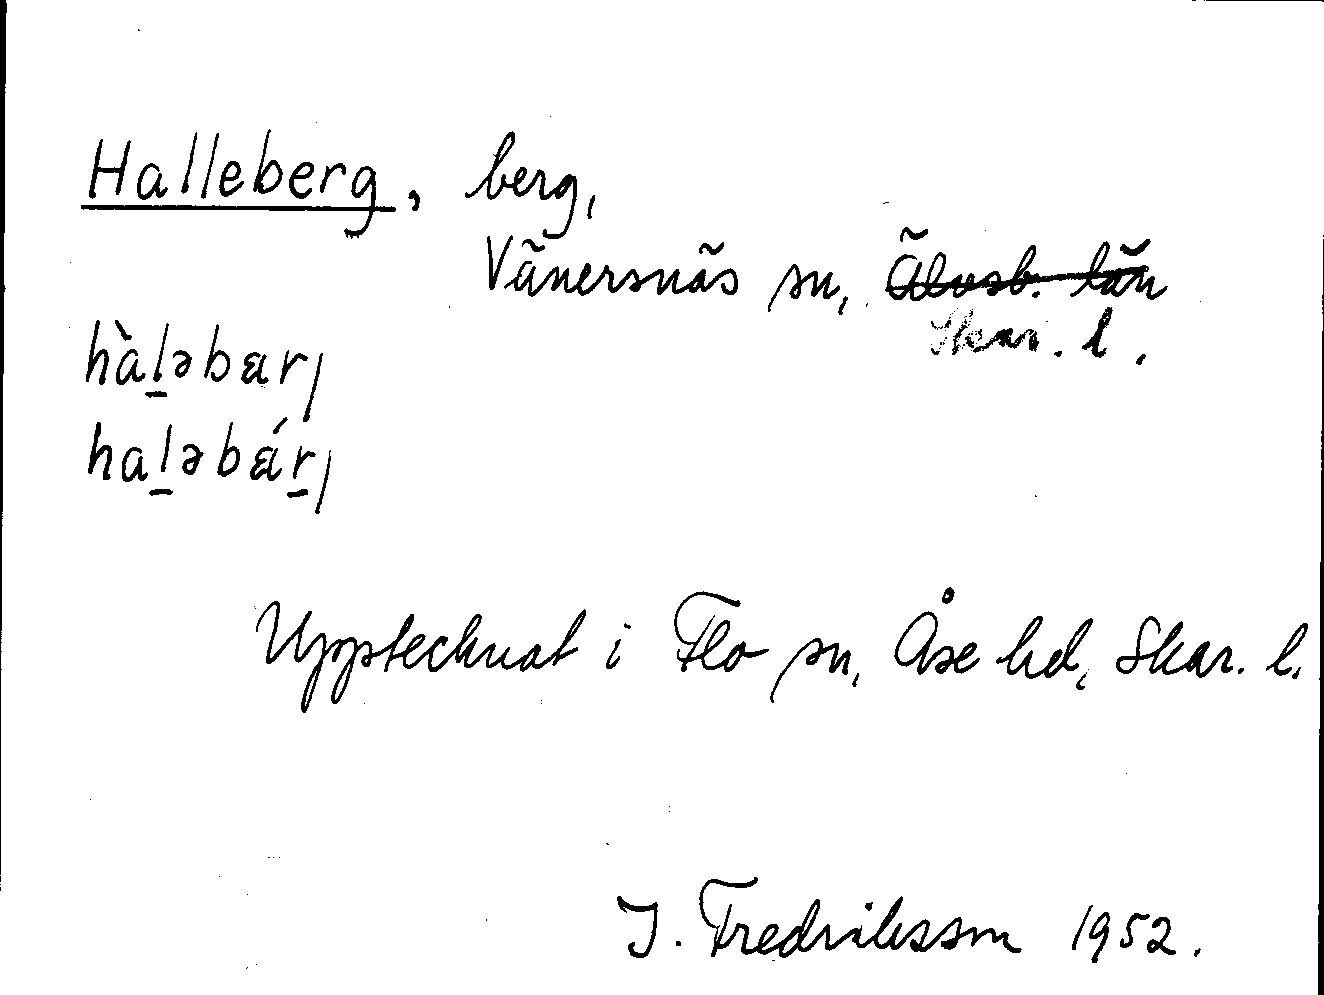 Halleberg, berg,
Vänersnäs sn, Älvsb. län
Skar. l.
hàl̠əbɛrȷ
hal̠əbɛ́r̠ȷ
Upptecknat i Flo sn, Åse hd, Skar. l.
I. Fredriksson 1952.